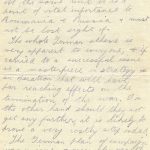 not the same but is a
point of vital importance to
Roumania & Russia & must
not be lost sight of.
The whole German plan is
very apparent to everyone, & if
carried to a successful issue
is a masterpiece of strategy
in duration that will have
far reaching effects in the
termination of the war. On
the other hand should they not
get any further, it is likely to
prove a very costly
The German plan of campaign